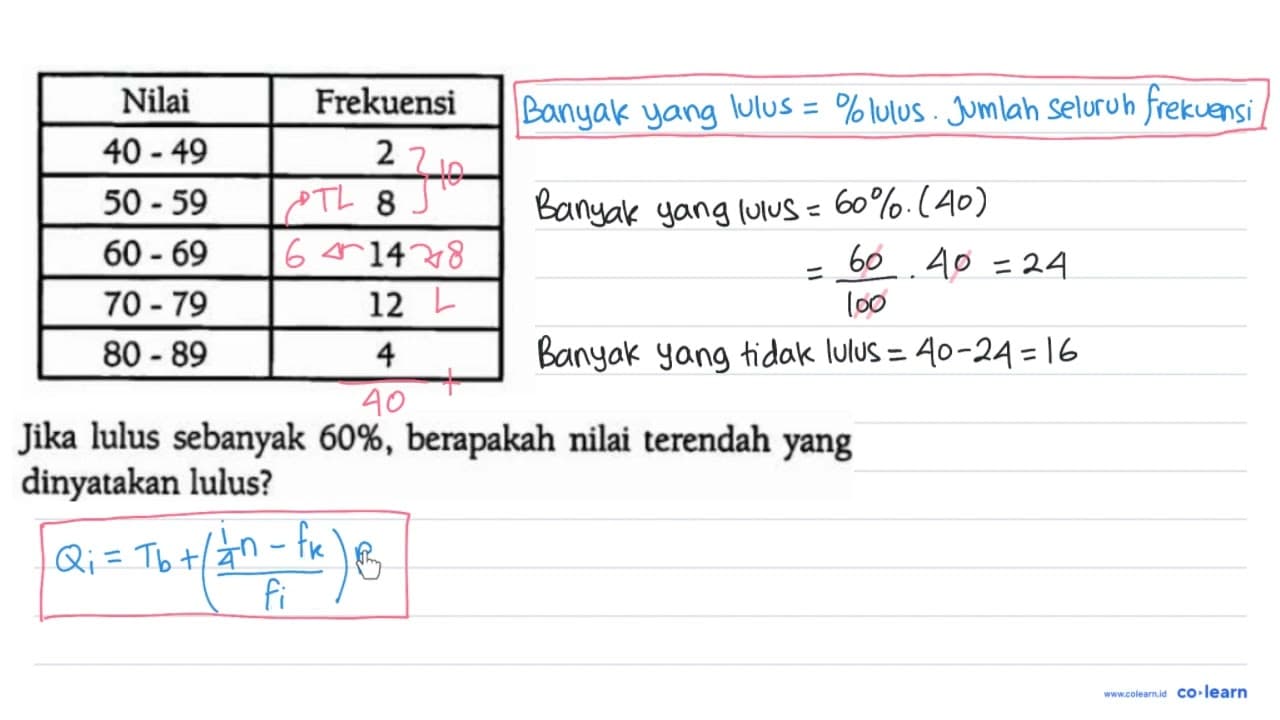 Nilai Frekuensi
40 - 49 2 } 10
50 - 59 TL 8
60 - 69 6 14 8
70 - 79 12 L
80 - 89 4
40 +
Banyak yang lulus = % lulus . Jumlah seluruh frekuensi
Banyak yang lulus = 60% . (40)
= 60/100 . 40 = 24
Banyak yang tidak lulus = 40 - 24 = 16
Jika lulus sebanyak 60%, berapakah nilai terendah yang
dinyatakan lulus?
Qi = Tb + ( (i/4 n - fk) / fi )
www.colearn.id co·learn